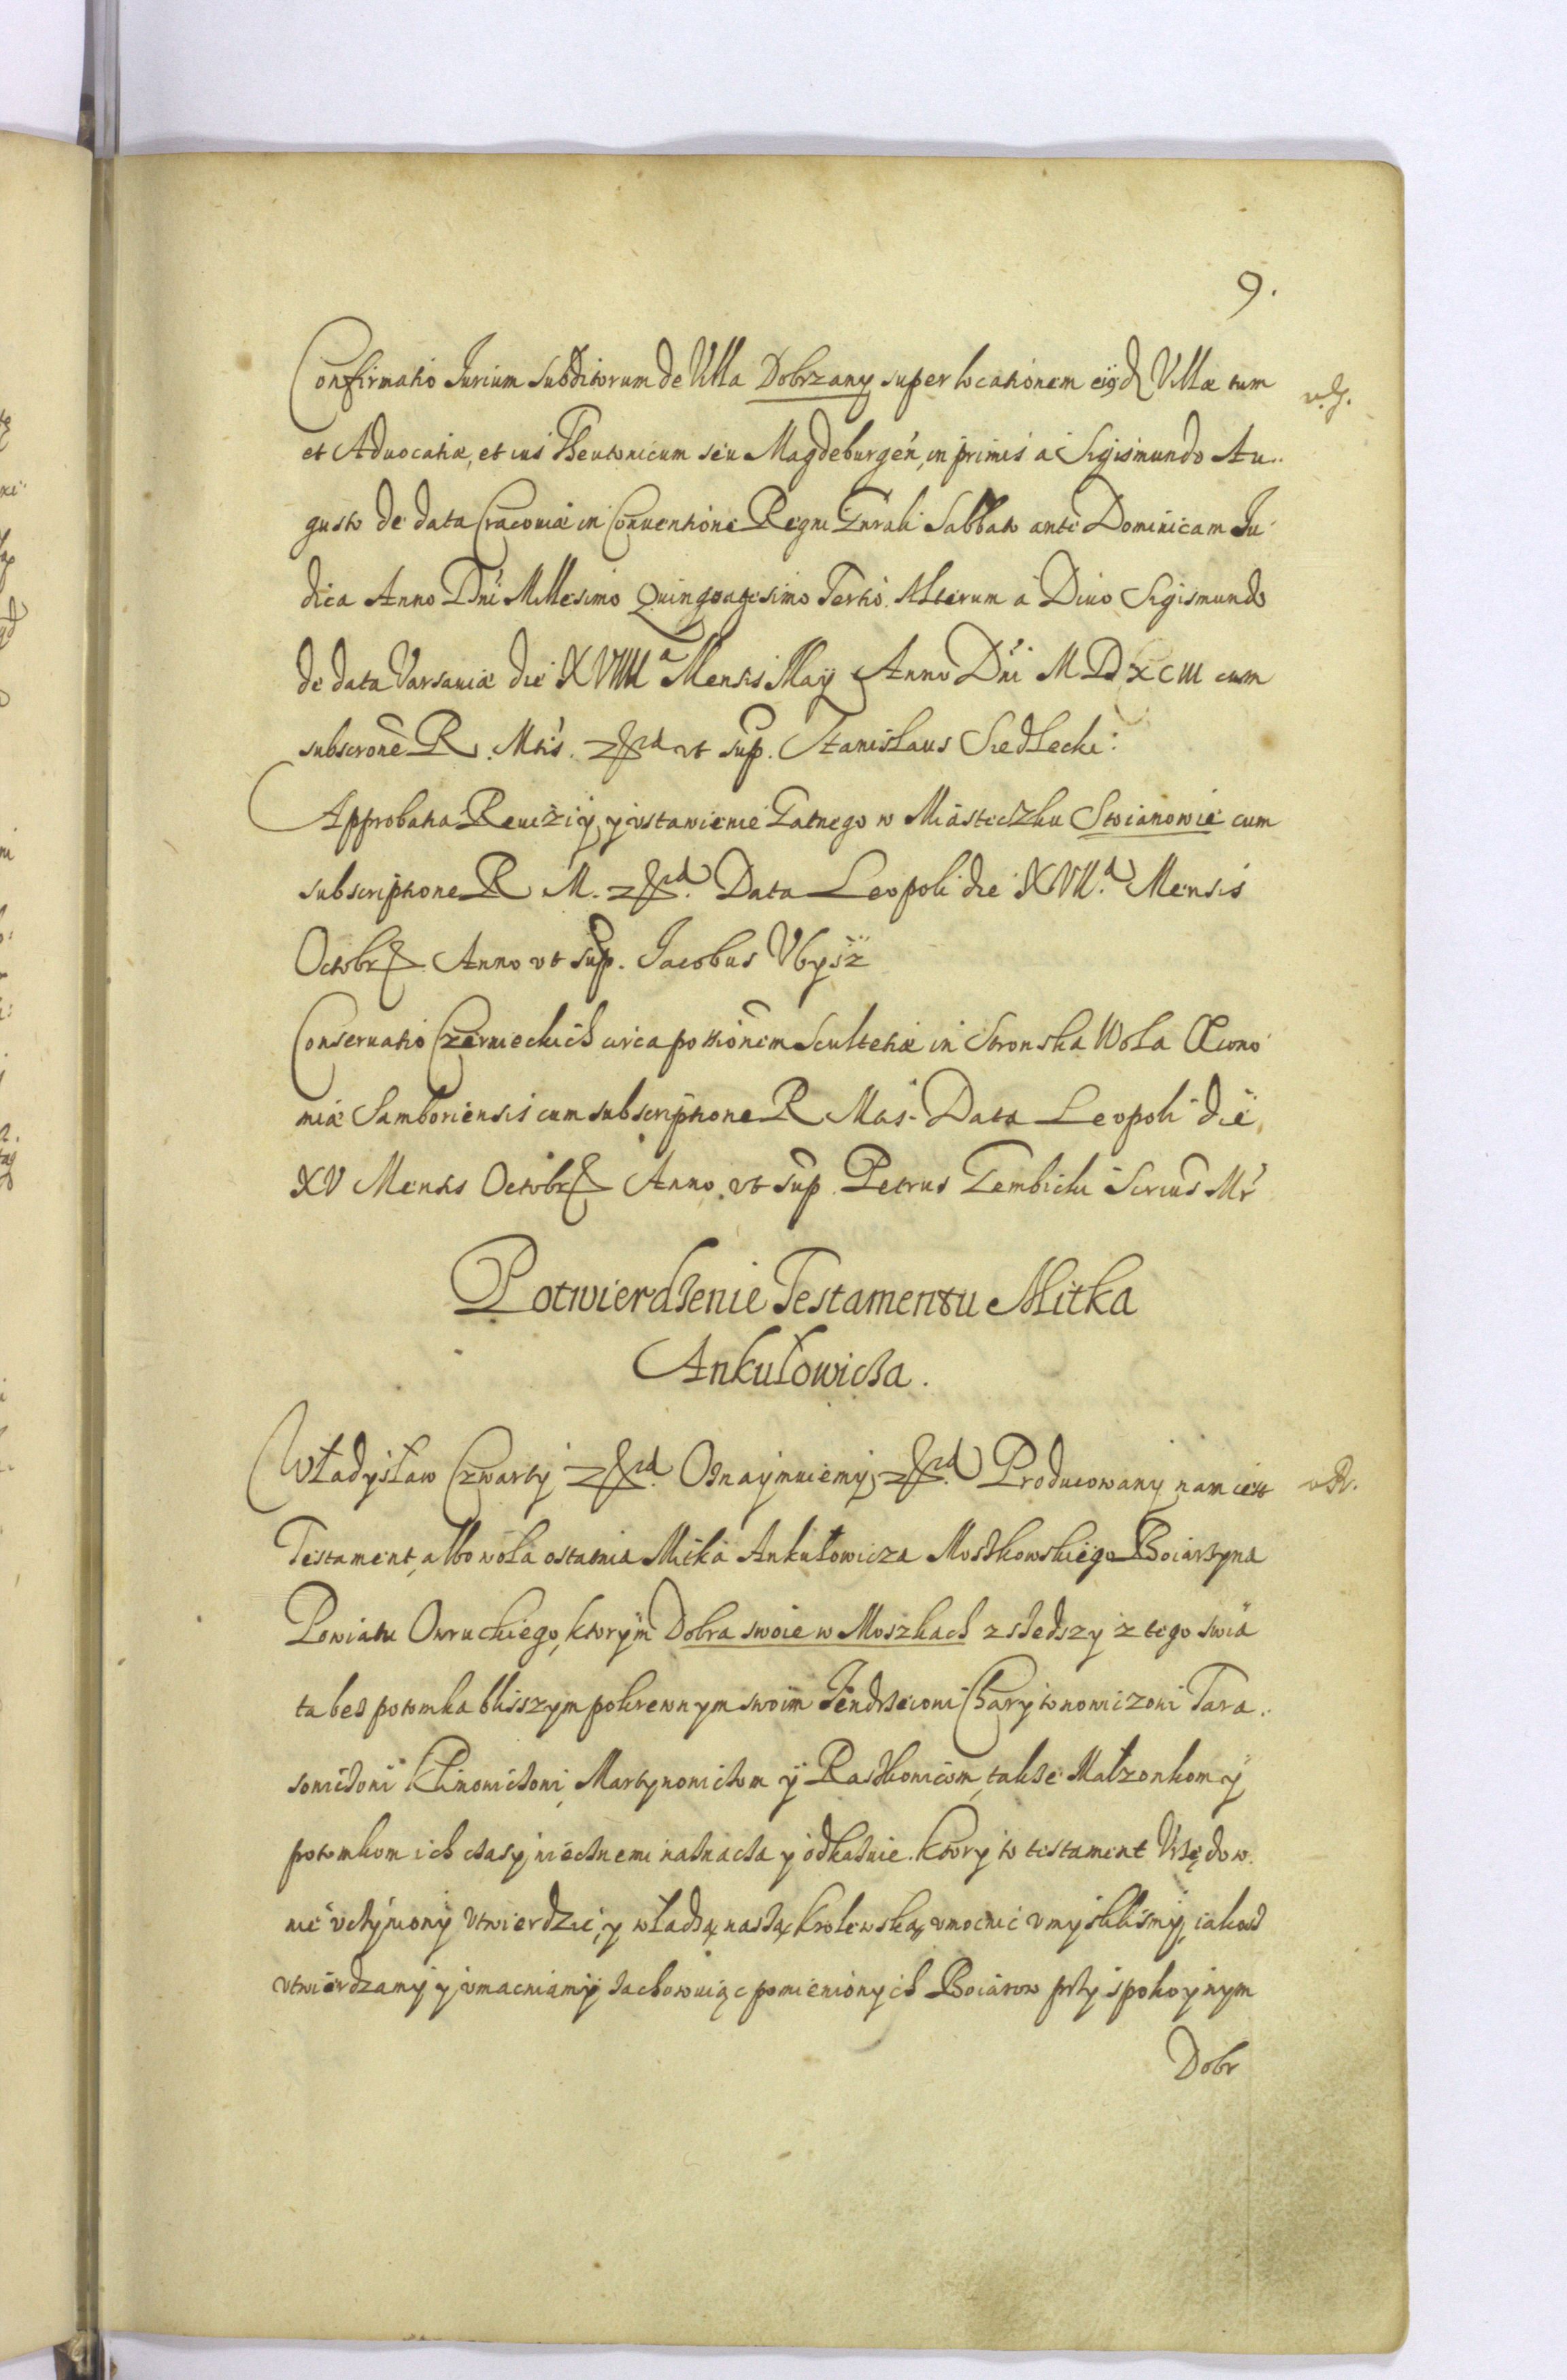 9.
Confirmatio Iurium subditorum de Villa Dobrzany super locationem eiqd Villæ tum
v. G.
et Aduocatiæ, et ius Theutonicum seu Magdeburgeń, in primis a Sigismundo Au..
gusto de data Cracouiæ in Conuentione Regni Gnrali Sabbato ante Dominicam Iu
dica Anno Dńi Millesimo Quingvagesimo Tertio. Alterum a Diuo Sigismundo
de data Varsauiæ die XVIIIIa Mensis Maÿ Anno Dńi MDXCIII cum
subscrone R. Mtis. etc vt sup. Stanislaus Siedlecki:
Approbatia Rewiziÿ, y vstawienie Tatnego w Miasteczku Stoianowie cum
subscriptione R M. etc. Data Leopoli die XVII.a Mensis
Octobr Anno vt sup. Jacobus Vbysz
Conseruatio Czernieckich circa portionem Scultetiæ in Stronska Wola Œcono
miæ Samboriensis cum subscriptione R Mas. Data Leopoli die
XV Mensis Octobr Anno vt sup. Petrus Gembicki Scrius Mr
Potwierdzenie Testamentu Mitka
Ankułowicza.
Władysław Czwarty etc. Oznaymuiemy, etc. Producowany nam iest
v R.
Testament, albo wola ostatnia Mitka Ankułowicza Moszkowskiego Boiarzyna
Powiatu Owruckiego, ktorym Dobra swoie w Moszkach zszedszy z tego swia
ta bez potomka bliszym pokrewnym swoim Jendrzeiowi Charytonowiczowi Tara..
sowiczowi Klimowiczowi, Martynowiczom ÿ Raszkowiczom, takze Małzonkom ÿ
potomkom ich czasy wiecznemi naznacza y odkazuie. Ktory to testament Vrzędow
nie vczyniony vtwierdzić, y władzą naszą krolewską vmocnić vmysliliśmy, iakosz
vtwierdzamy y vmacniamy zachowuiąc pomienionych Boiarow przy spokoynym
Dobr